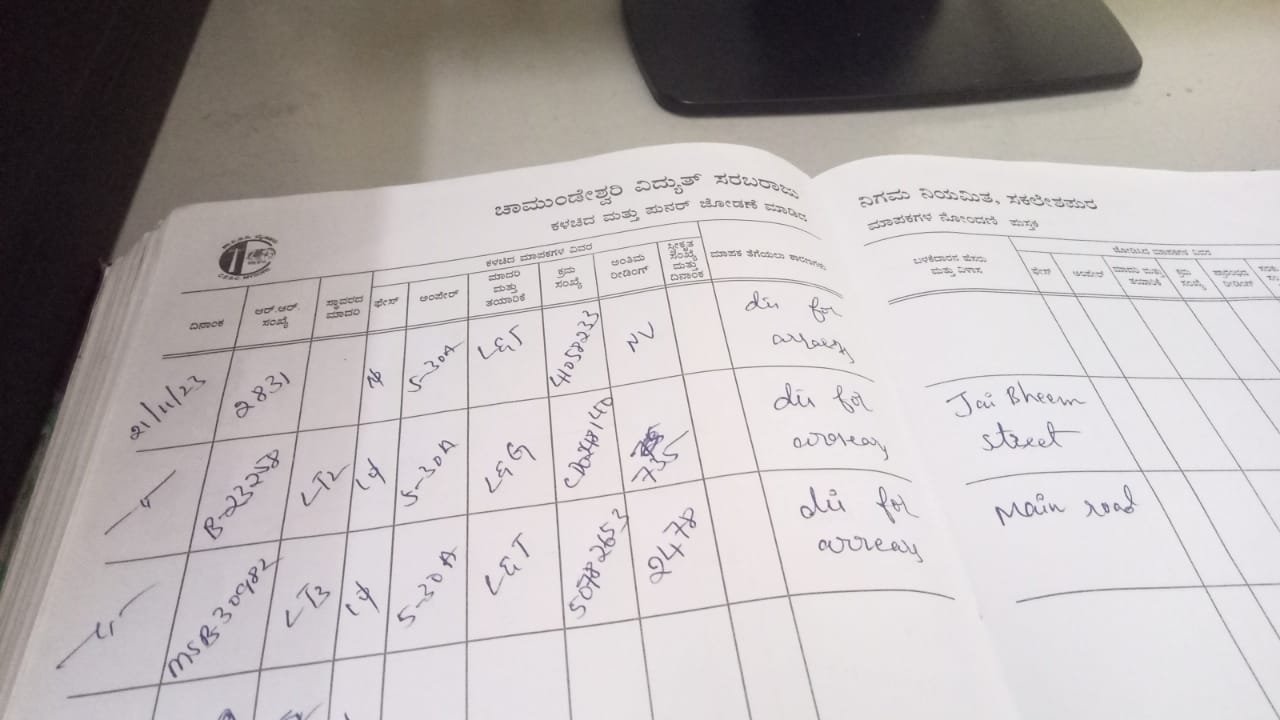 ಚಾಮುಂಡೇಶ್ವರಿ ವಿದ್ಯುತ್ ಸರಬರಾಜು ನಿಗಮ ನಿಯಮಿತ, ಸಕಲೇಶಪುರ
ಕಳಚಿದ ಮತ್ತು ಪುನರ್ ಜೋಡಣೆ ಮಾಡಿದ ಮಾಪಕಗಳ ನೋಂದಣಿ ಪುಸ್ತಕ
ಕಳಚಿದ ಮಾಪಕಗಳ ವಿವರ
ದಿನಾಂಕ
ಆರ್.ಆರ್. ಸಂಖ್ಯೆ
ಸ್ಥಾವರದ ಮಾದರಿ
ಫೇಸ್
ಅಂಪೇರ್
ಮಾದರಿ ಮತ್ತು ತಯಾರಿಕೆ
ಕ್ರಮ ಸಂಖ್ಯೆ
ಅಂತಿಮ ರೀಡಿಂಗ್
ಸ್ವೀಕೃತ ಸಂಖ್ಯೆ ಮತ್ತು ದಿನಾಂಕ
ಮಾಪಕ ತೆಗೆಯಲು ಕಾರಣಗಳು
ಬಳಕೆದಾರನ ಹೆಸರು ಮತ್ತು ವಿಳಾಸ
ಫೇಸ್
ಅಂಪೇರ್
ಮಾದರಿ ಮತ್ತು ತಯಾರಿಕೆ
ಕ್ರಮ ಸಂಖ್ಯೆ
ಪ್ರಾರಂಭದ ರೀಡಿಂಗ್
21/11/23 2831 5-30A L&T 41058233 NV dis for arrears
B-23258 LT2 1φ 5-30A L&G 735 dis for arrears Jai Bheem street
MSB-30982 LT3 1φ 5-30A L&T 50782653 2478 dis for arrears Main road